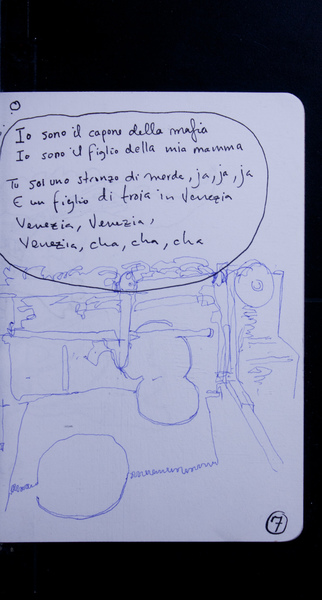 Io sono il capone della mafia
Io sono il figlio della mia mamma
Tu sei uno stronzo di merda, ja, ja, ja
E un figlio di troia in Venezia
Venezia, Venezia,
Venezia, cha, cha, cha
7